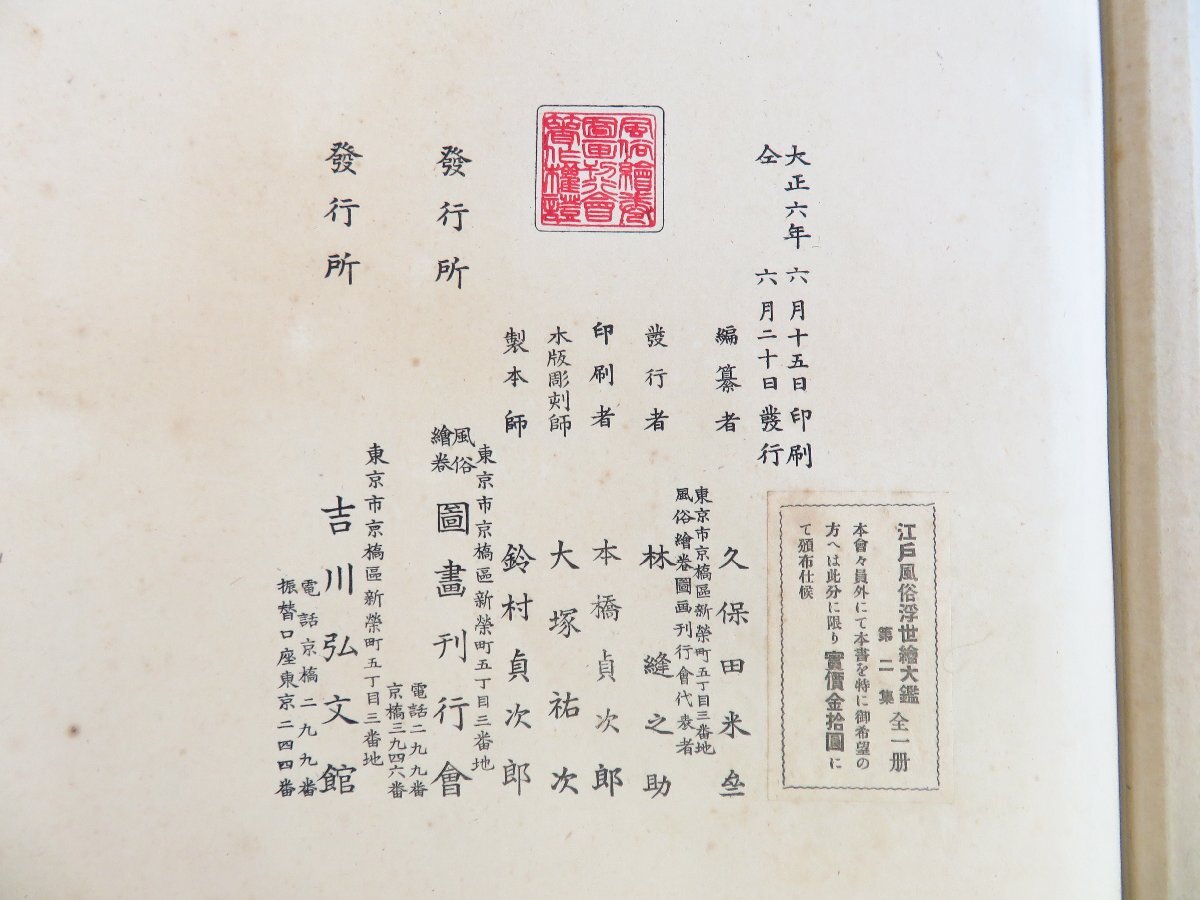 江戶風俗浮世繪大鑑 第二集 全一册
本會々員外にて本書を特に御希望の
方へは此分に限り實價金拾圓に
て頒布仕候
大正六年六月十五日印刷
仝 六月二十日發行
編纂者 久保田米
東京市京橋區新榮町五丁目三番地
風俗繪卷圖画刊行會代表者
發行者 林縫之助
印刷者 本橋貞次郎
木版彫刻師 大塚祐次
製本師 鈴村貞次郎
風俗繪卷圖畫刊行會著作權證
東京市京橋區新榮町五丁目三番地
發行所 風俗繪卷圖畫刊行會
電話二九九番
京橋三九四六番
東京市京橋區新榮町五丁目三番地
發行所 吉川弘文館
電話京橋二九九番
振替口座東京二四四番